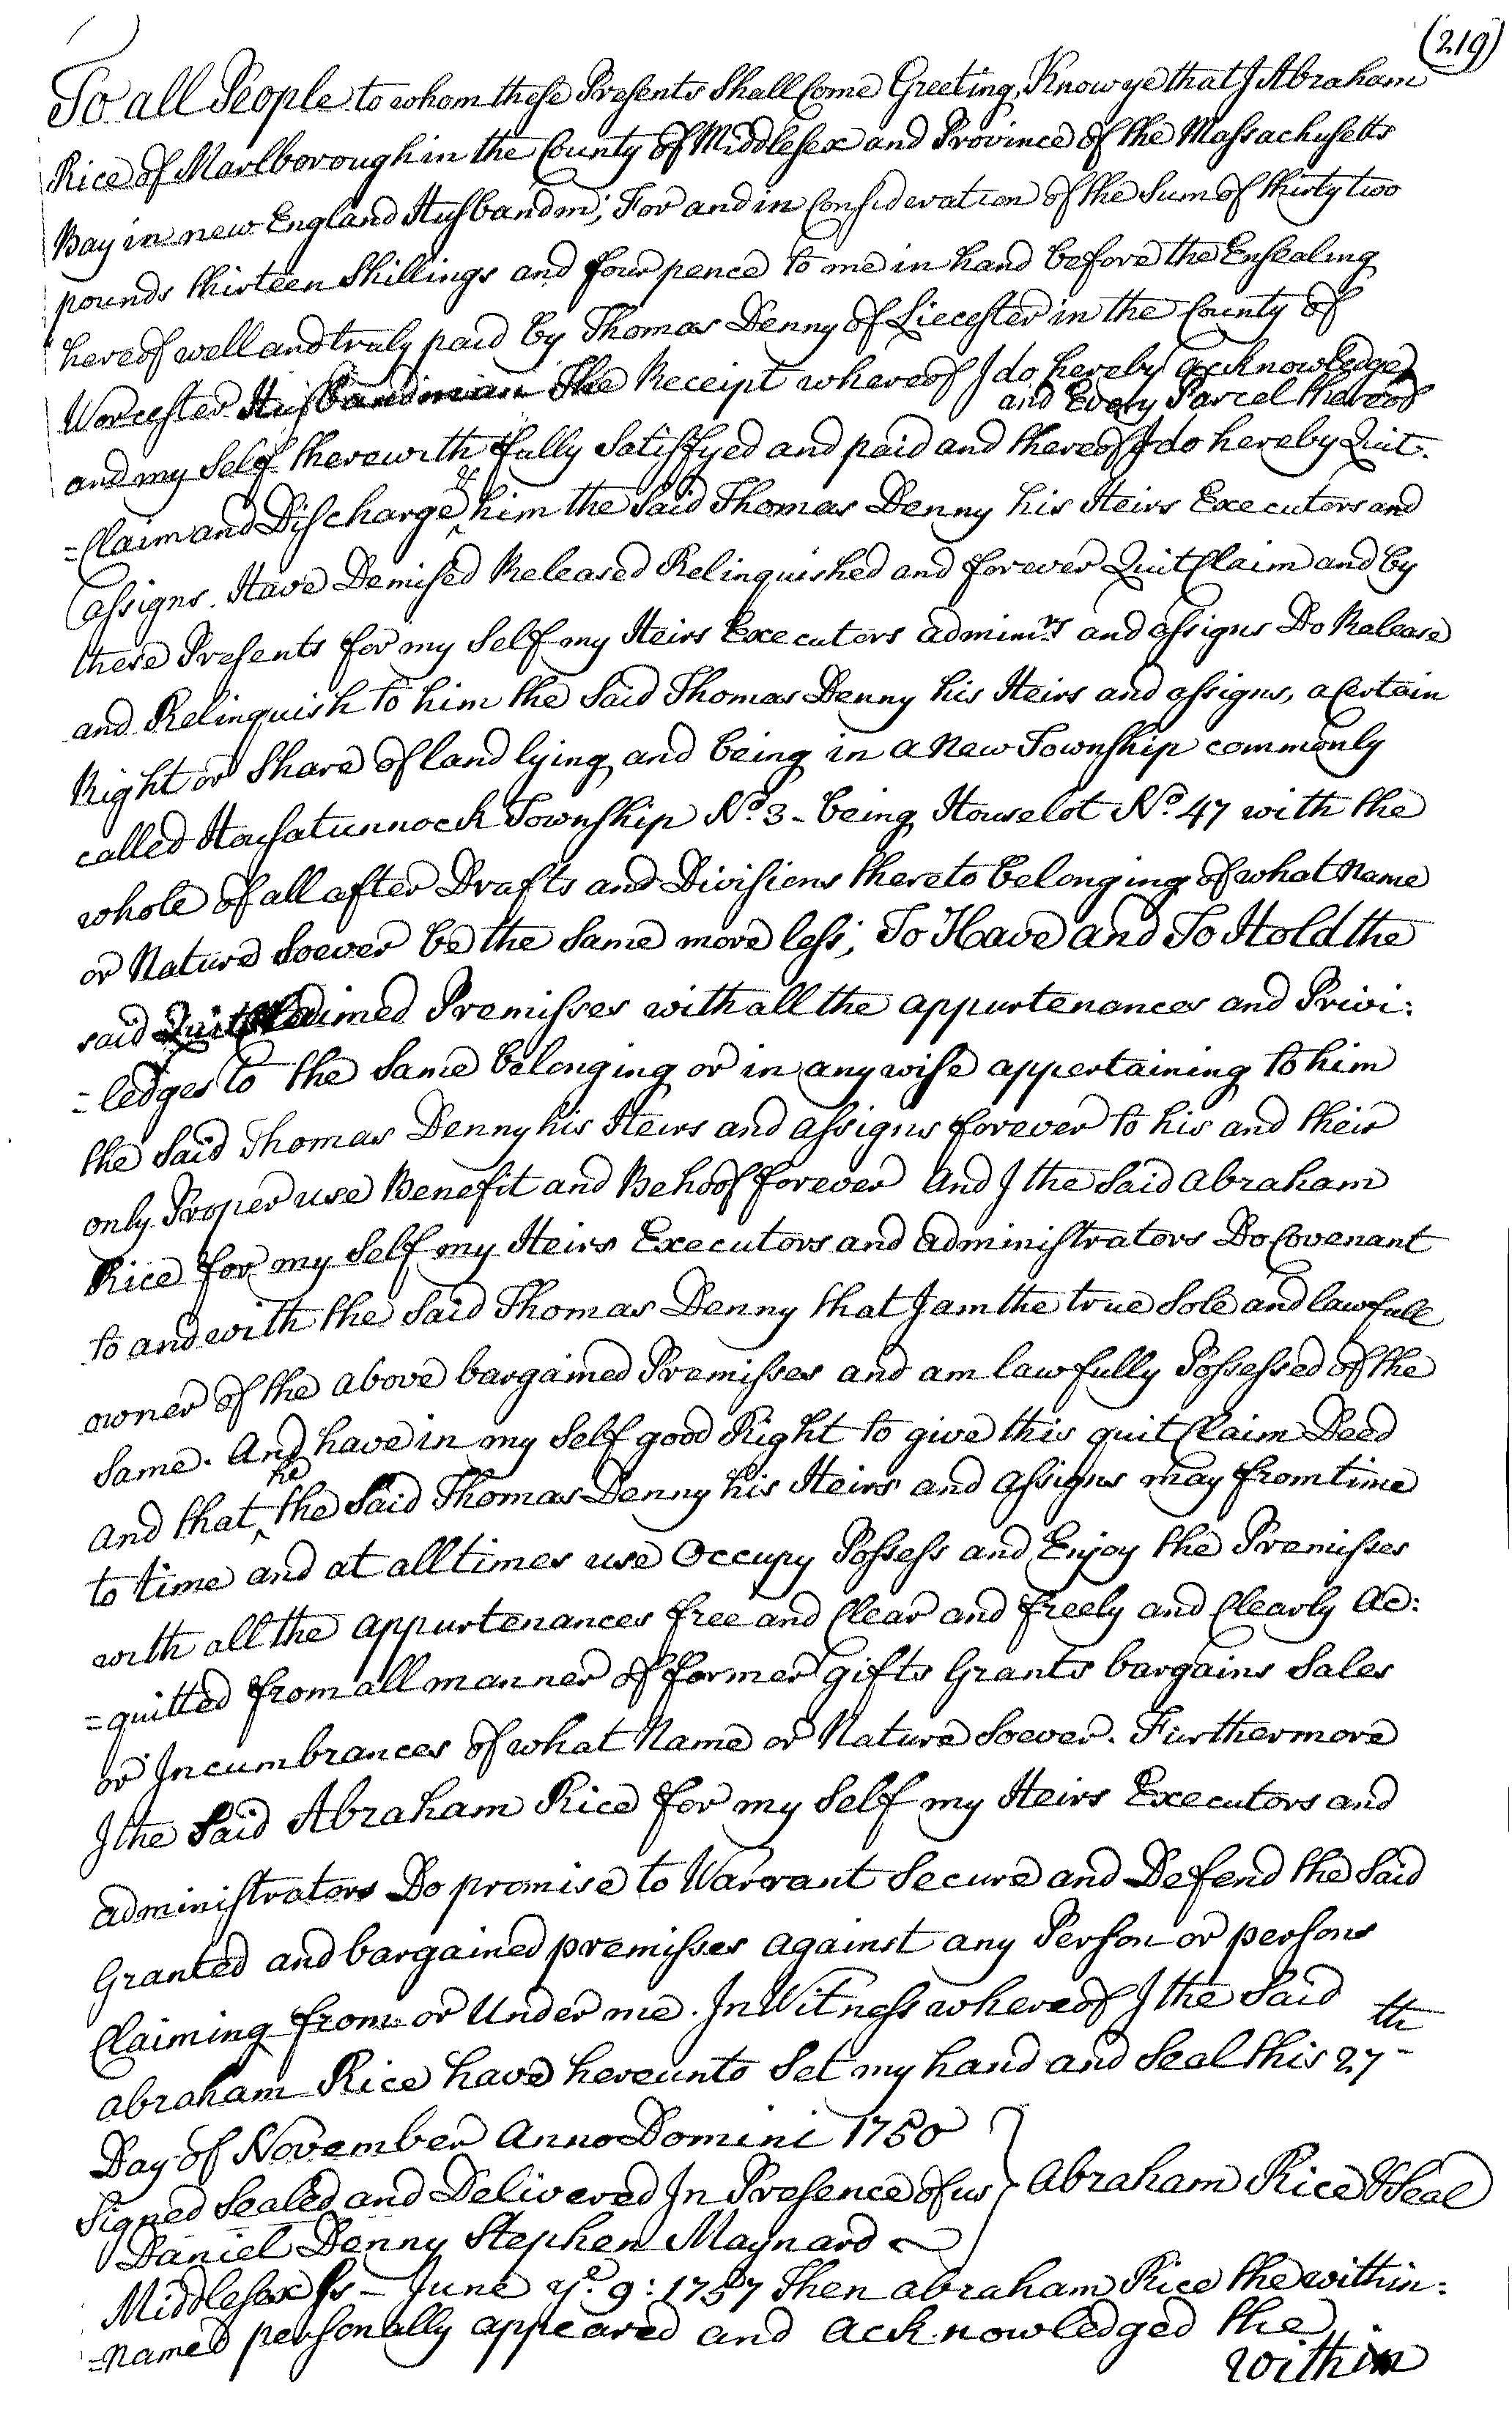 (219)
To all People to whom these Presents Shall Come Greeting, Know ye that I Abraham
Rice of Marlborough in the County of Middlesex and Province of the Massachusetts
Bay in new England Husbandm; For and in Consideration of the Sum of thirty two
pounds thirteen Shillings and four pence to me in hand before the Ensealing
hereof well and truly paid by Thomas Denny of Liecester in the County of
Worcester Husbandman The Receipt whereof I do hereby acknowledge
and Every Parcel thereof
and my Self therewith fully Satisfyed and paid and thereof I do hereby Quit-
=Claim and Discharge of him the Said Thomas Denny his Heirs Executors and
assigns. Have Demised Released Relinquished and forever QuitClaim and by
these Presents for my Self my Heirs Executors admin.rs and assigns Do Release
and Relinquish to him the Said Thomas Denny his Heirs and assigns, a Certain
Right or Share of land lying and being in a New Township commonly
called Housatunnock Township No. 3 - being Houselot No. 47 with the
whole of all after Drafts and Divisions thereto belonging of what Name
or Nature Soever be the Same more less; To Have and To Hold the
said QuitClaimed Premisses with all the appurtenances and Privi:
=ledges to the Same belonging or in any wise appertaining to him
the Said Thomas Denny his Heirs and assigns forever to his and their
only Proper use Benefit and Behoof forever And I the Said Abraham
Rice for my Self my Heirs Executors and administrators Do Covenant
to and with the Said Thomas Denny that I am the true Sole and lawfull
owner of the above bargained Premisses and am lawfully Possessed of the
Same. And have in my Self good Right to give this quit Claim Deed
and that he the Said Thomas Denny his Heirs and assigns may from time
to time and at all times use Occupy Possess and Enjoy the Premisses
with all the appurtenances free and Clear and freely and Clearly ac:
=quitted from all manner of former gifts Grants bargains Sales
or Incumbrances of what Name or Nature Soever. Furthermore
I the Said Abraham Rice for my Self my Heirs Executors and
administrators Do promise to Warrant Secure and Defend the Said
Granted and bargained premisses against any Person or persons
Claiming from or Under me. In Witness whereof I the Said
abraham Rice have hereunto Set my hand and Seal this 27th
Day of November Anno Domini 1750
Signed Sealed and Delivered In Presence of us } Abraham Rice & Seal
Daniel Denny Stephen Maynard
Middlesex ss - June ye. 9: 1757 Then abraham Rice the within:
=named personally appeared and acknowledged the
within